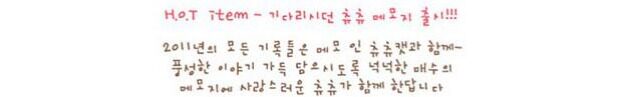 H.O.T item - 기다리시던 츄츄 메모지 출시!!!
2011년의 모든 기록들은 메모 인 츄츄캣과 함께~
풍성한 이야기 가득 담으시도록 넉넉한 매수의
메모지에 사랑스러운 츄츄가 함께 한답니다